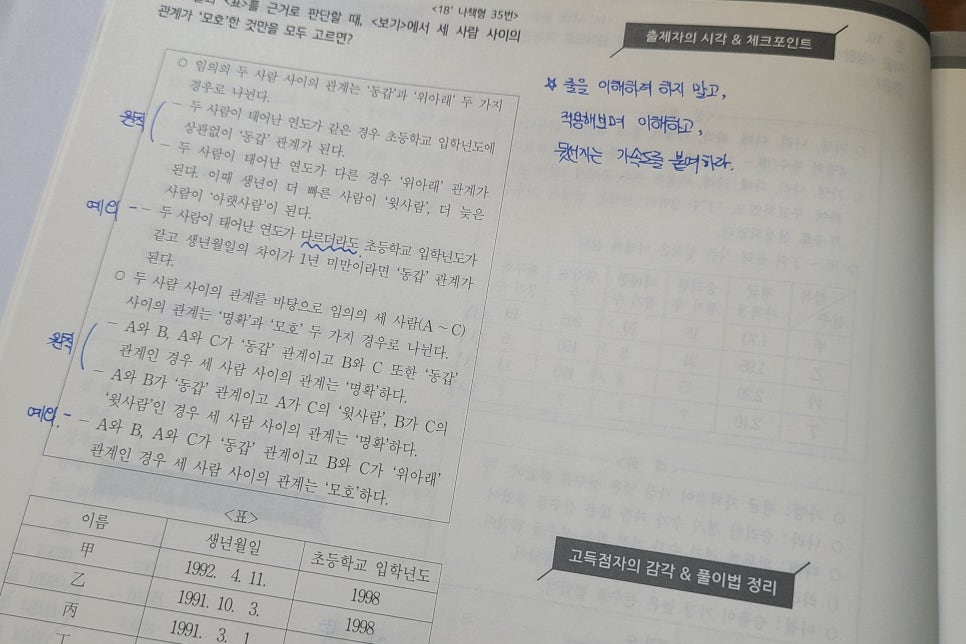 <표>를 근거로 판단할 때, <보기>에서 세 사람 사이의
<18' 나책형 35번>
관계가 '모호'한 것만을 모두 고르면?
○ 임의의 두 사람 사이의 관계는 '동갑'과 '위아래' 두 가지
경우로 나뉜다.
- 두 사람이 태어난 연도가 같은 경우 초등학교 입학년도에
상관없이 '동갑' 관계가 된다.
- 두 사람이 태어난 연도가 다른 경우 '위아래' 관계가
된다. 이때 생년이 더 빠른 사람이 '윗사람', 더 늦은
사람이 '아랫사람'이 된다.
- 두 사람이 태어난 연도가 다르더라도 초등학교 입학년도가
같고 생년월일의 차이가 1년 미만이라면 '동갑' 관계가
된다.
○ 두 사람 사이의 관계를 바탕으로 임의의 세 사람(A ~ C)
사이의 관계는 '명확'과 '모호' 두 가지 경우로 나뉜다.
- A와 B, A와 C가 '동갑' 관계이고 B와 C 또한 '동갑'
관계인 경우 세 사람 사이의 관계는 '명확'하다.
- A와 B가 '동갑' 관계이고 A가 C의 '윗사람', B가 C의
'윗사람'인 경우 세 사람 사이의 관계는 '명확'하다.
- A와 B, A와 C가 '동갑' 관계이고 B와 C가 '위아래'
관계인 경우 세 사람 사이의 관계는 '모호'하다.
원칙
예외 -
원칙
예외 -
<표>
이름 생년월일 초등학교 입학년도
甲 1992. 4. 11. 1998
乙 1991. 10. 3. 1998
丙 1991. 3. 1.
丁
출제자의 시각 & 체크포인트
☆ 줄을 이해하려 하지 말고,
적용해보며 이해하고,
뒷선지는 가속도를 붙여하라.
고득점자의 감각 & 풀이법 정리